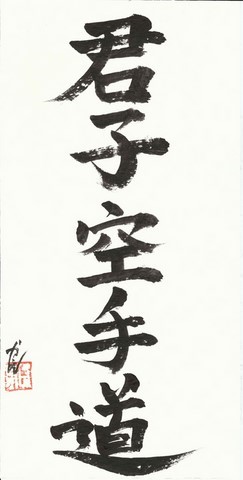 君子空手道